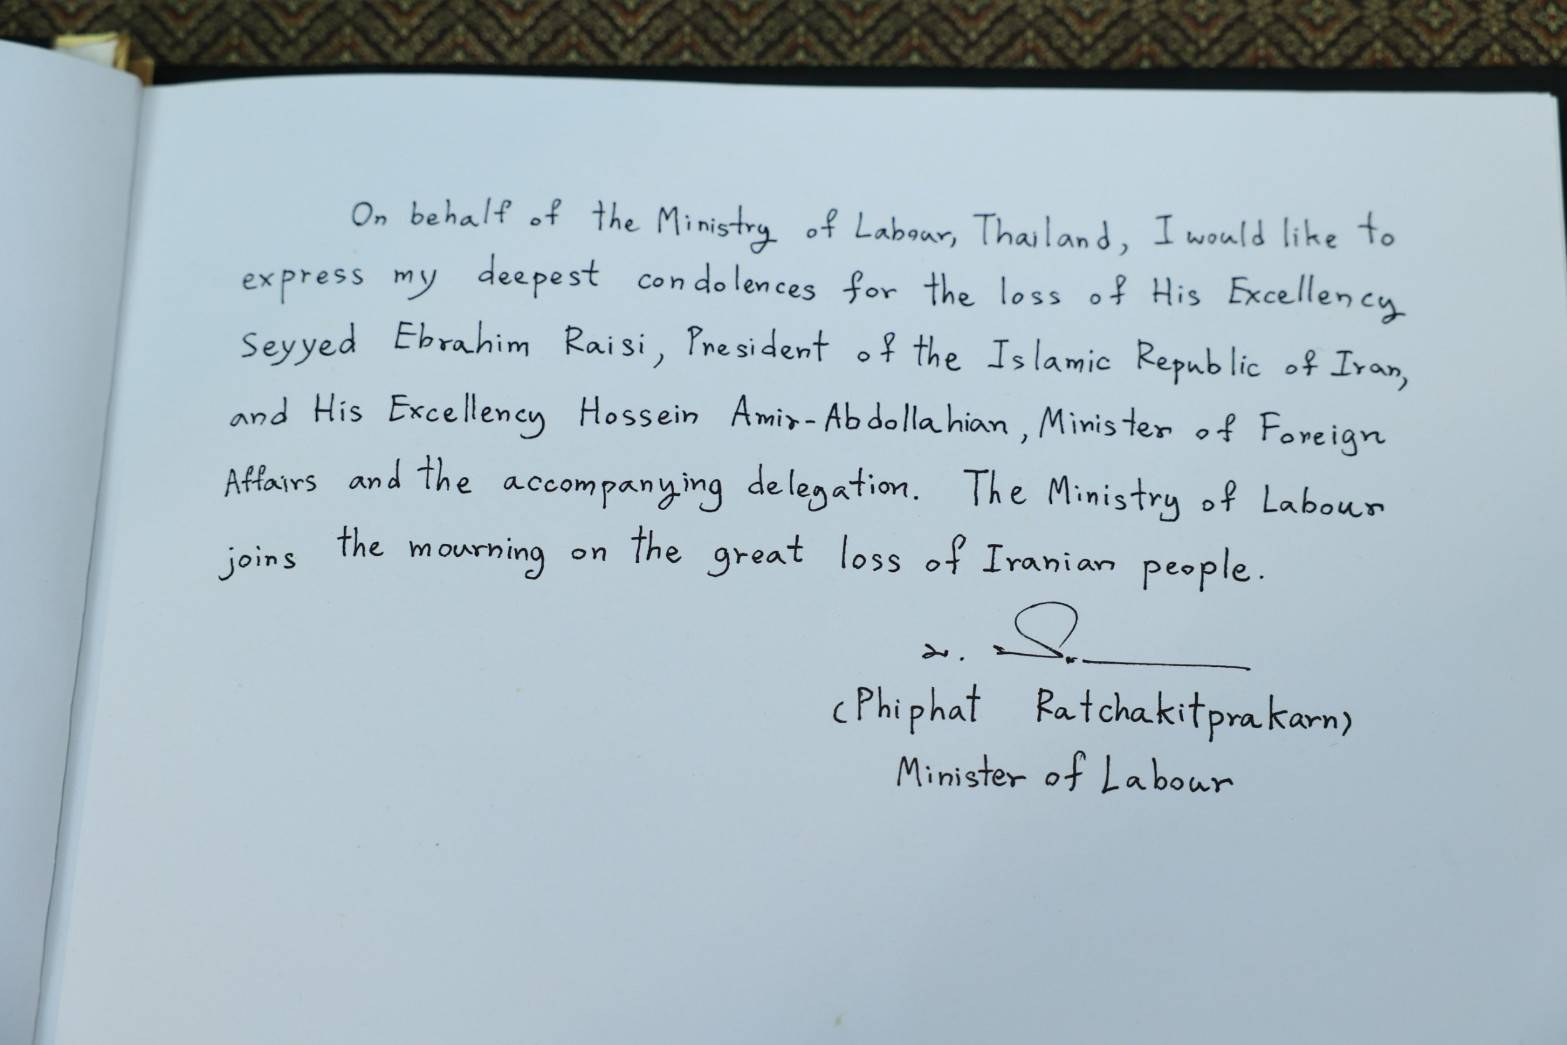 On behalf of the Ministry of Labour, Thailand, I would like to
express my deepest condolences for the loss of His Excellency
Seyyed Ebrahim Raisi, President of the Islamic Republic of Iran,
and His Excellency Hossein Amir-Abdollahian, Minister of Foreign
Affairs and the accompanying delegation. The Ministry of Labour
joins the mourning on the great loss of Iranian people.
(Phiphat Ratchakitprakarn)
Minister of Labour